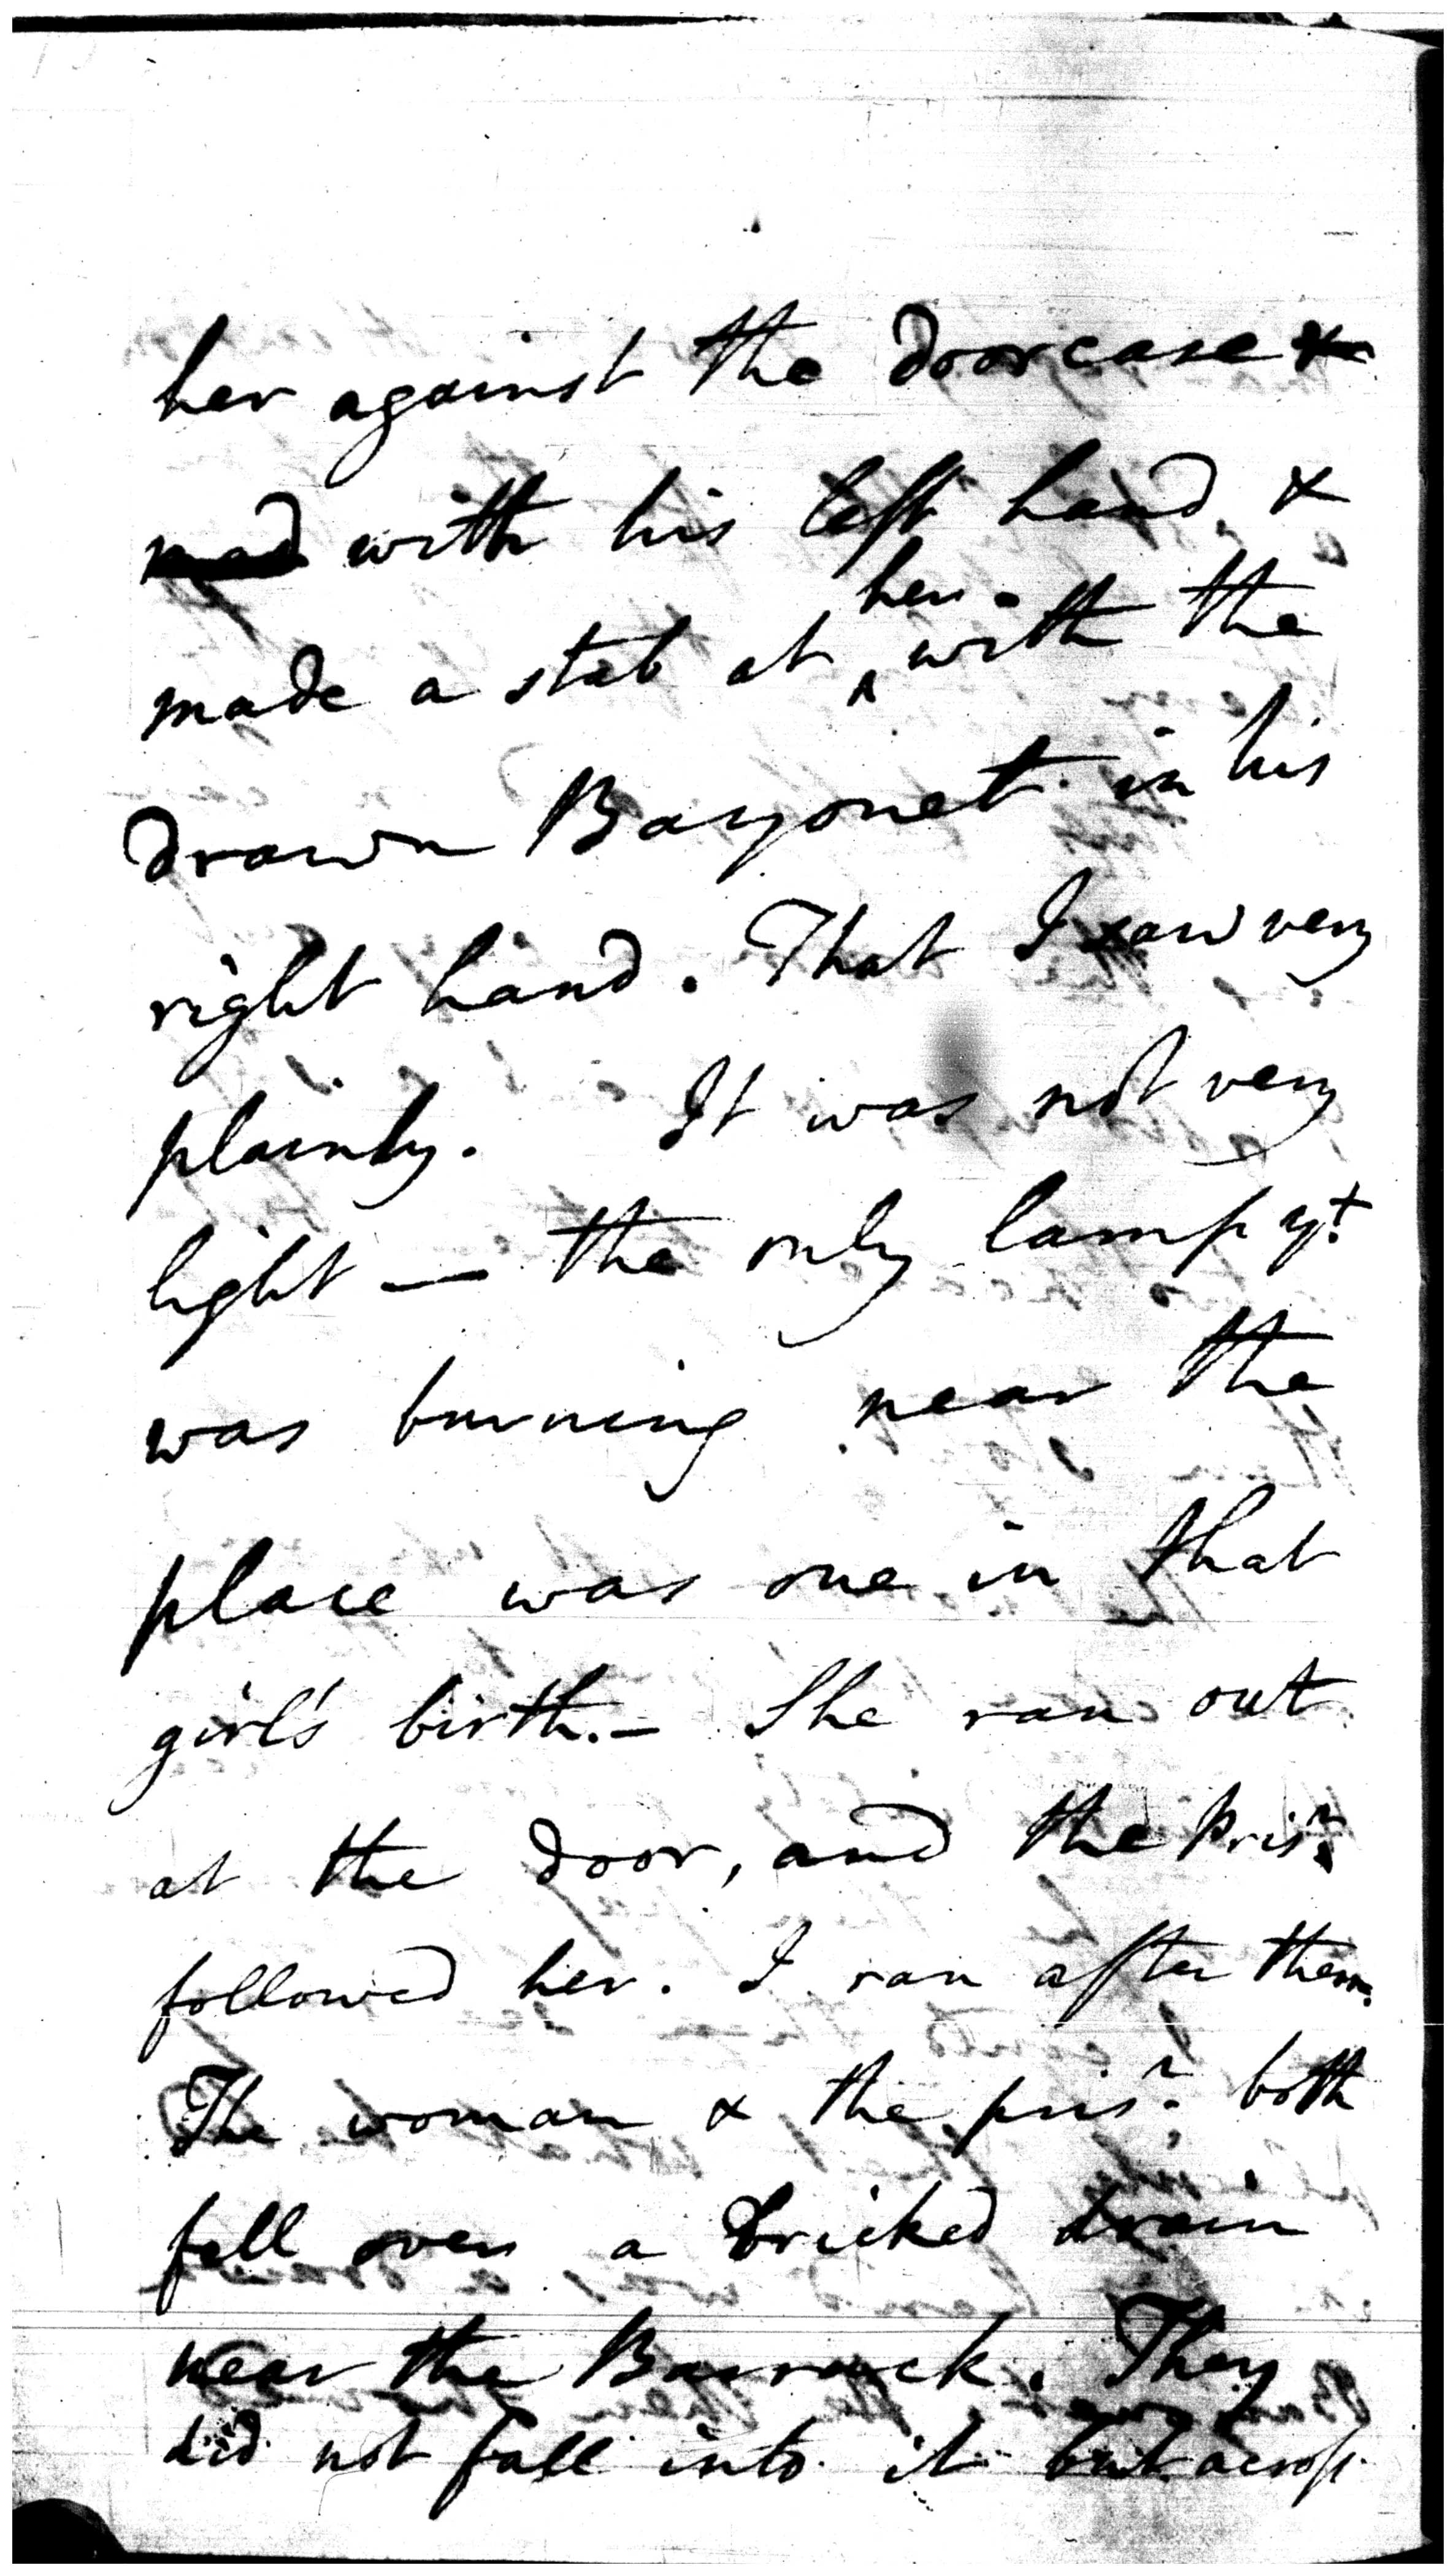 her against the doorcase &
mad with his left hand &
made a stab at her with the
drawn Bayonet in his
right hand. That I saw very
plainly. It was not very
light — the only lamp yt.
was burning near the
place was one in that
girl's birth. – She ran out
at the door, and the Prisr.
followed her. I ran after them.
The woman & the prisr. both
fell over a bricked drain
near the Barrack. They
did not fall into it but across